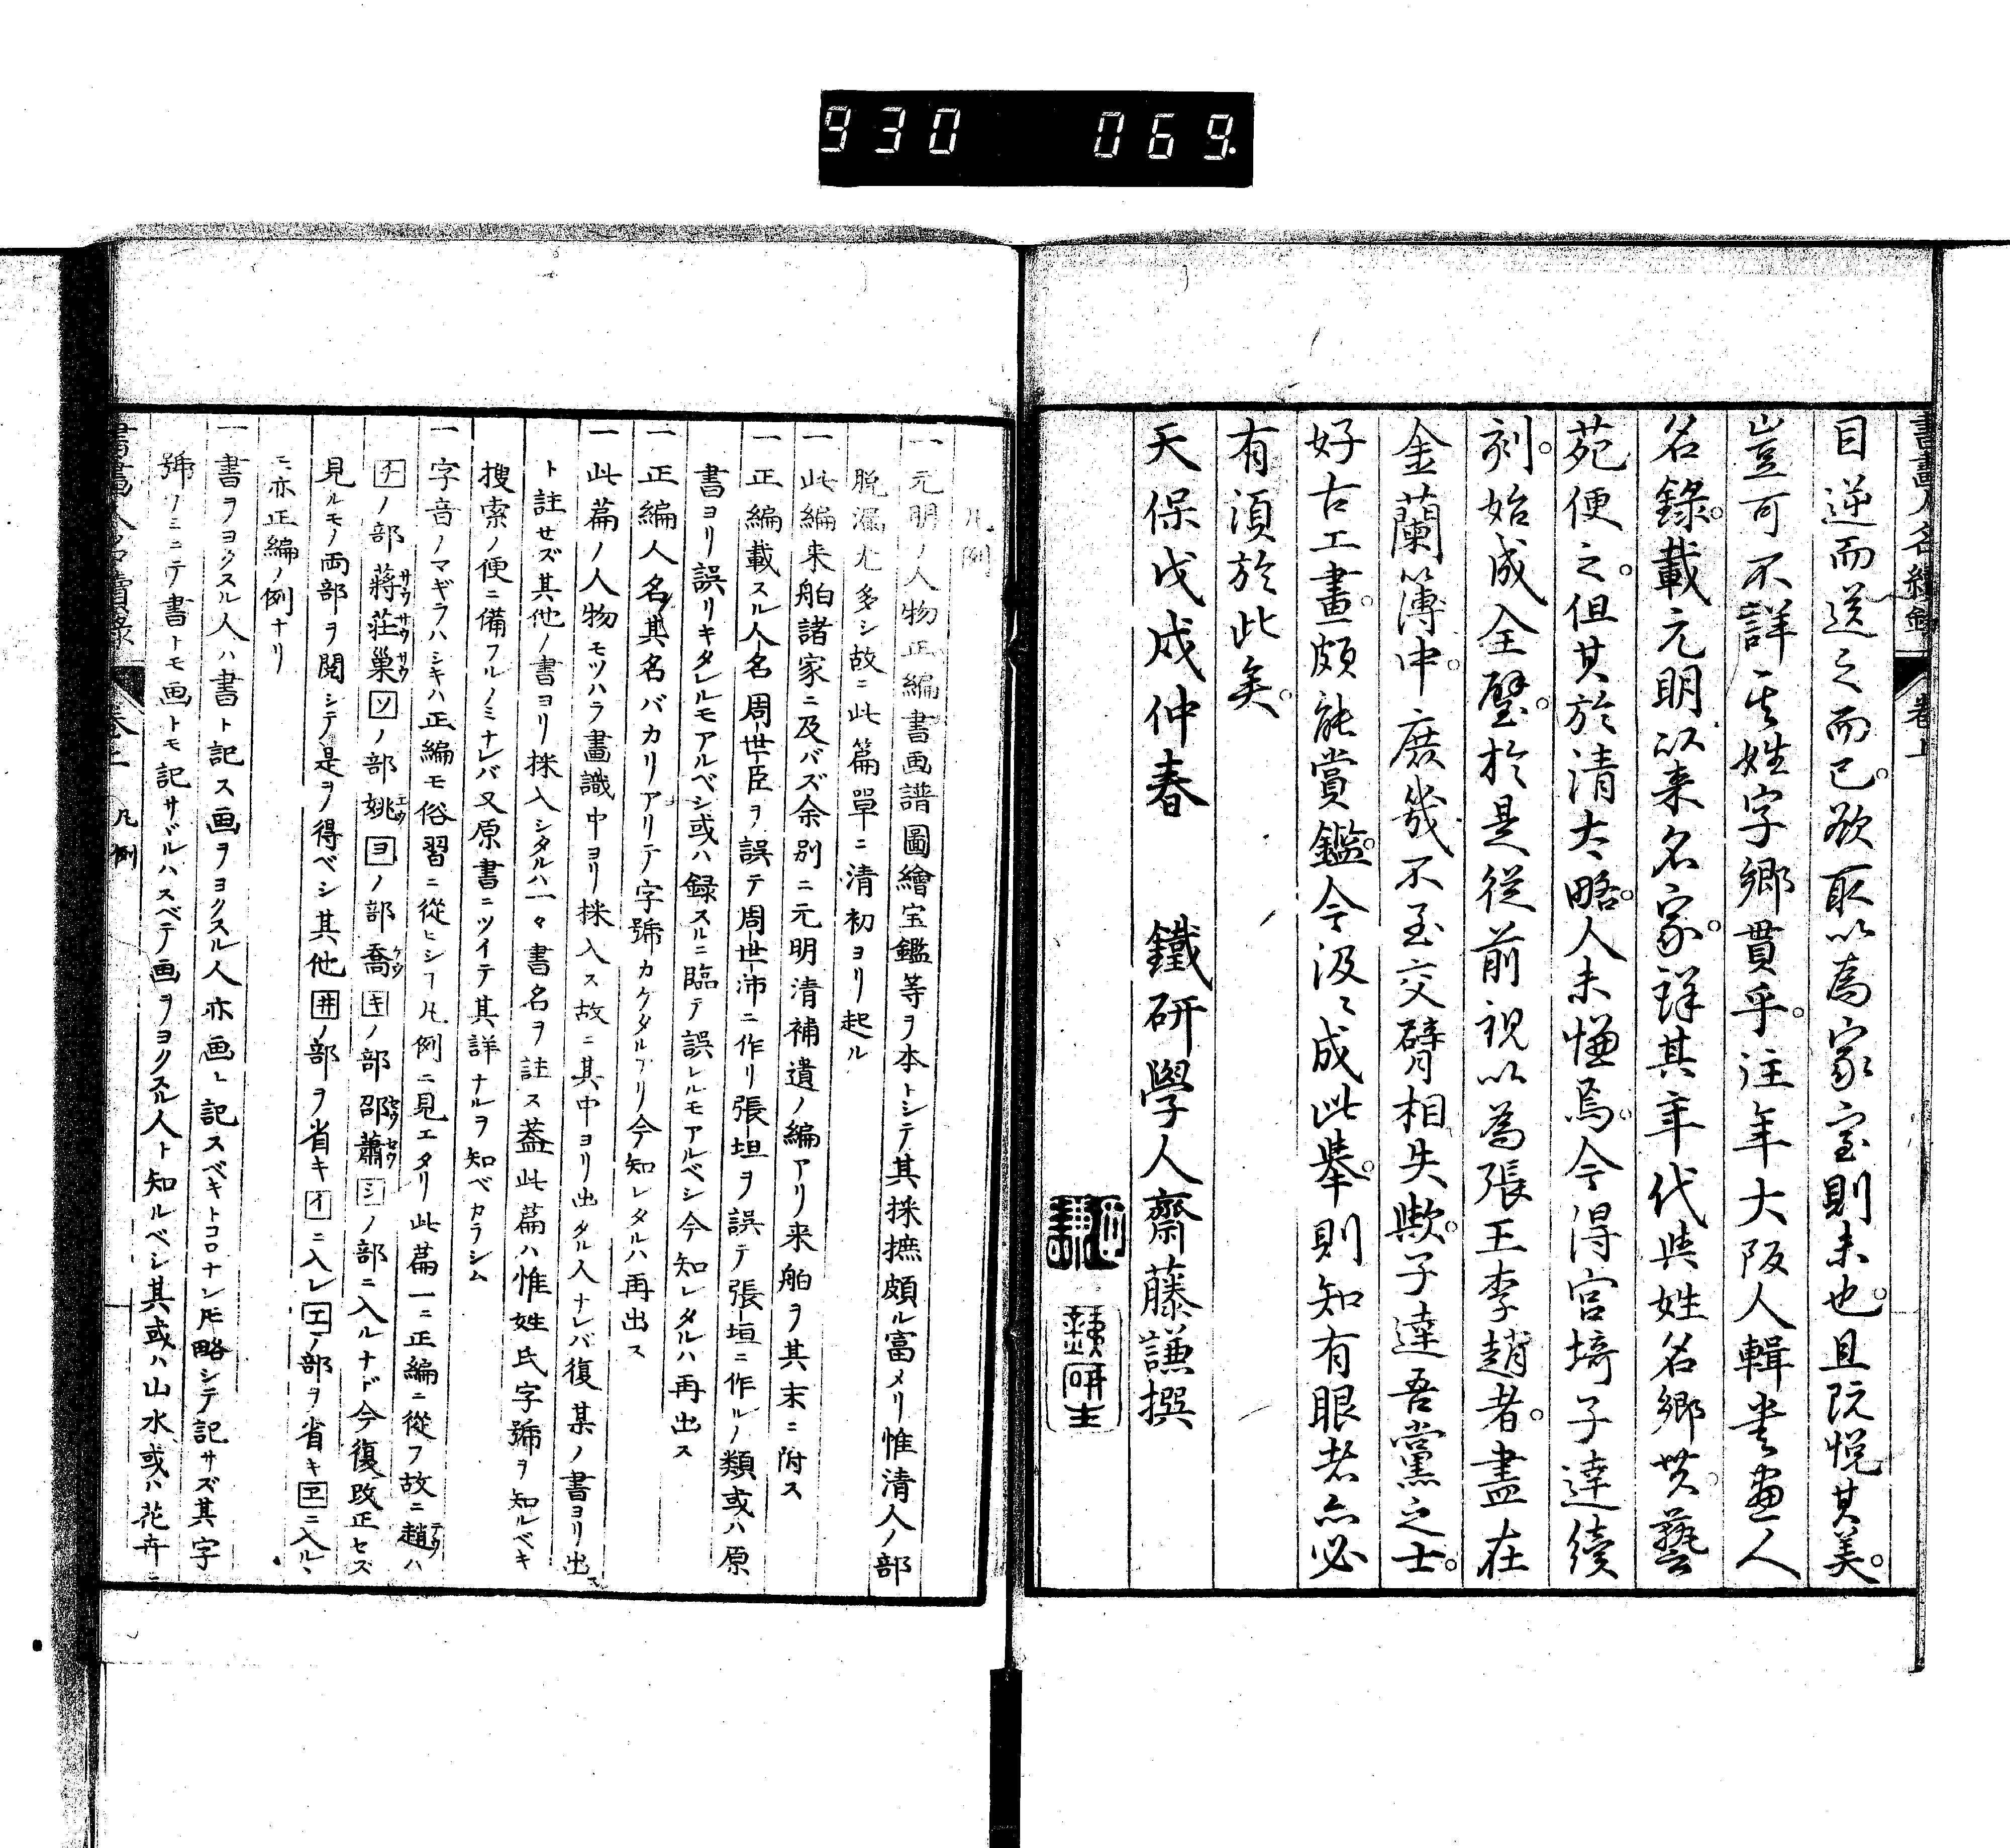 930 069.
書畫人名續錄 卷上
目逆而送之而已欲取以為家宝則未也且既悅其美
豈可不詳其姓字鄉貫乎注年大阪人輯書画人
名錄載元明以来名家詳其年代與姓名鄉貫藝
苑便之但其於清太略人未慊焉今得宮埼子達續
刻始成全壁於是從前視以為張王李趙者盡在
金蘭簿中庶幾不至交臂相失歟子達吾黨之士
好古工畫頗能賞鑑今汲〻成此舉則知有眼者亦必
有須於此矣
天保戊戌仲春 鐵研學人齋藤謙撰
凡例
一元明ノ人物正編書画譜圖繪宝鑑等ヲ本トシテ其採摭頗ル富メリ惟清人ノ部
脱漏尤多シ故ニ此篇單ニ清初ヨリ起ル
一此編来舶諸家ニ及バズ余別ニ元明清補遺ノ編アリ来舶ヲ其末ニ附ス
一正編載スル人名周世臣ヲ誤テ周世沛ニ作リ張坦ヲ誤テ張垣ニ作ルノ類或ハ原
書ヨリ誤リキタレルモアルベシ或ハ録スルニ臨テ誤レルモアルベシ今知レタルハ再出ス
一正編人名其名バカリアリテ字號カケタルアリ今知レタルハ再出ス
一此篇ノ人物モツハラ畫識中ヨリ採入ス故ニ其中ヨリ出タル人ナレバ復某ノ書ヨリ出ス
ト註セズ其他ノ書ヨリ採入シタルハ一々書名ヲ註ス葢此篇ハ惟姓氏字號ヲ知ルベキ
搜索ノ便ニ備フルノミナレバ又原書ニツイテ其詳ナルヲ知ベカラシム
一字音ノマギラハシキハ正編モ俗習ニ從ヒシヿ凡例ニ見エタリ此篇一ニ正編ニ從フ故ニ趙ハ
チノ部蔣莊巢ソノ部姚ヨノ部喬キノ部邵蕭シノ部ニ入ルナド今復改正セズ
見ルモノ両部ヲ閲シテ是ヲ得ベシ其他井ノ部ヲ省キイニ入レエノ部ヲ省キヱニ入ル
ニ亦正編ノ例ナリ
一書ヲヨクスル人ハ書ト記ス画ヲヨクスル人亦画ト記スベキトコロナレ𪜈略シテ記サズ其字
號ノミニテ書トモ画トモ記サヾルハスベテ画ヲヨクスル人ト知ルベシ其或ハ山水或ハ花卉ニ
書畫人名續錄 卷上 凡例 一